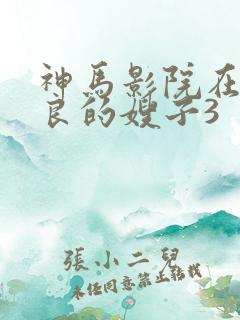 神馬影院在
良的嫂子3
張小二兒
未经同意禁止转载